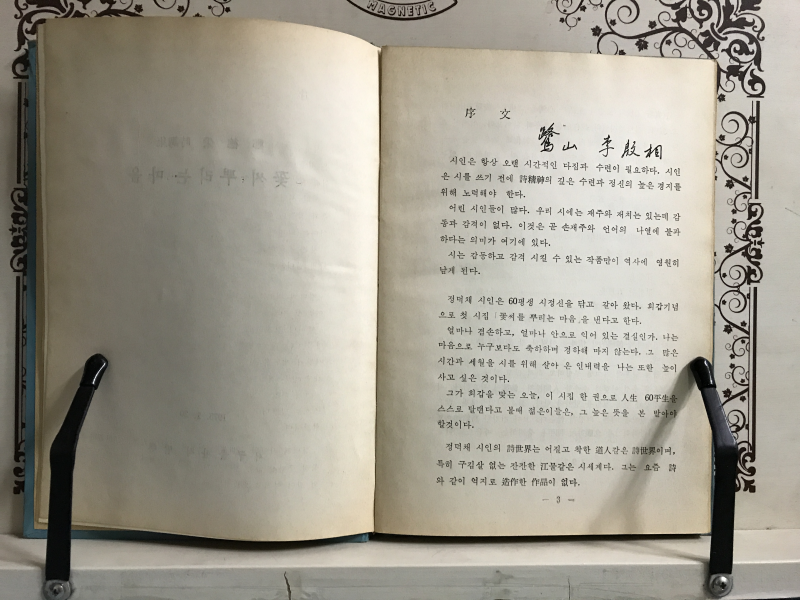 MAGNETIC
꽃씨 뿌리는 마음
序 文
鷺山 李殷相
시인은 항상 오랜 시간적인 다짐과 수련이 필요하다. 시인
은 시를 쓰기 전에 詩精神의 깊은 수련과 정신의 높은 경지를
위해 노력해야 한다.
어린 시인들이 많다. 우리 시에는 재주와 재치는 있는데 감
동과 감격이 없다. 이것은 곧 손재주와 언어의 나열에 불과
하다는 의미가 여기에 있다.
시는 감동하고 감격 시킬 수 있는 작품만이 역사에 영원히
남게 된다.
정덕채 시인은 60평생 시정신을 닦고 갈아 왔다. 회갑기념
으로 첫 시집 「꽃씨를 뿌리는 마음」을 낸다고 한다.
얼마나 겸손하고, 얼마나 안으로 익어 있는 결실인가. 나는
마음으로 누구보다도 축하하며 경하해 마지 않는다. 그 많은
시간과 세월을 시를 위해 살아 온 인내력을 나는 또한 높이
사고 싶은 것이다.
그가 회갑을 맞는 오늘, 이 시집 한 권으로 人生 60平生을
스스로 달랜다고 볼때 젊은이들은, 그 높은 뜻을 본 받아야
할것이다.
정덕채 시인의 詩世界는 어질고 착한 道人같은 詩世界이며,
특히 구김살 없는 잔잔한 江물같은 시세계다. 그는 요즘 詩
와 같이 억지로 造作한 作品이 없다.
— 3 —